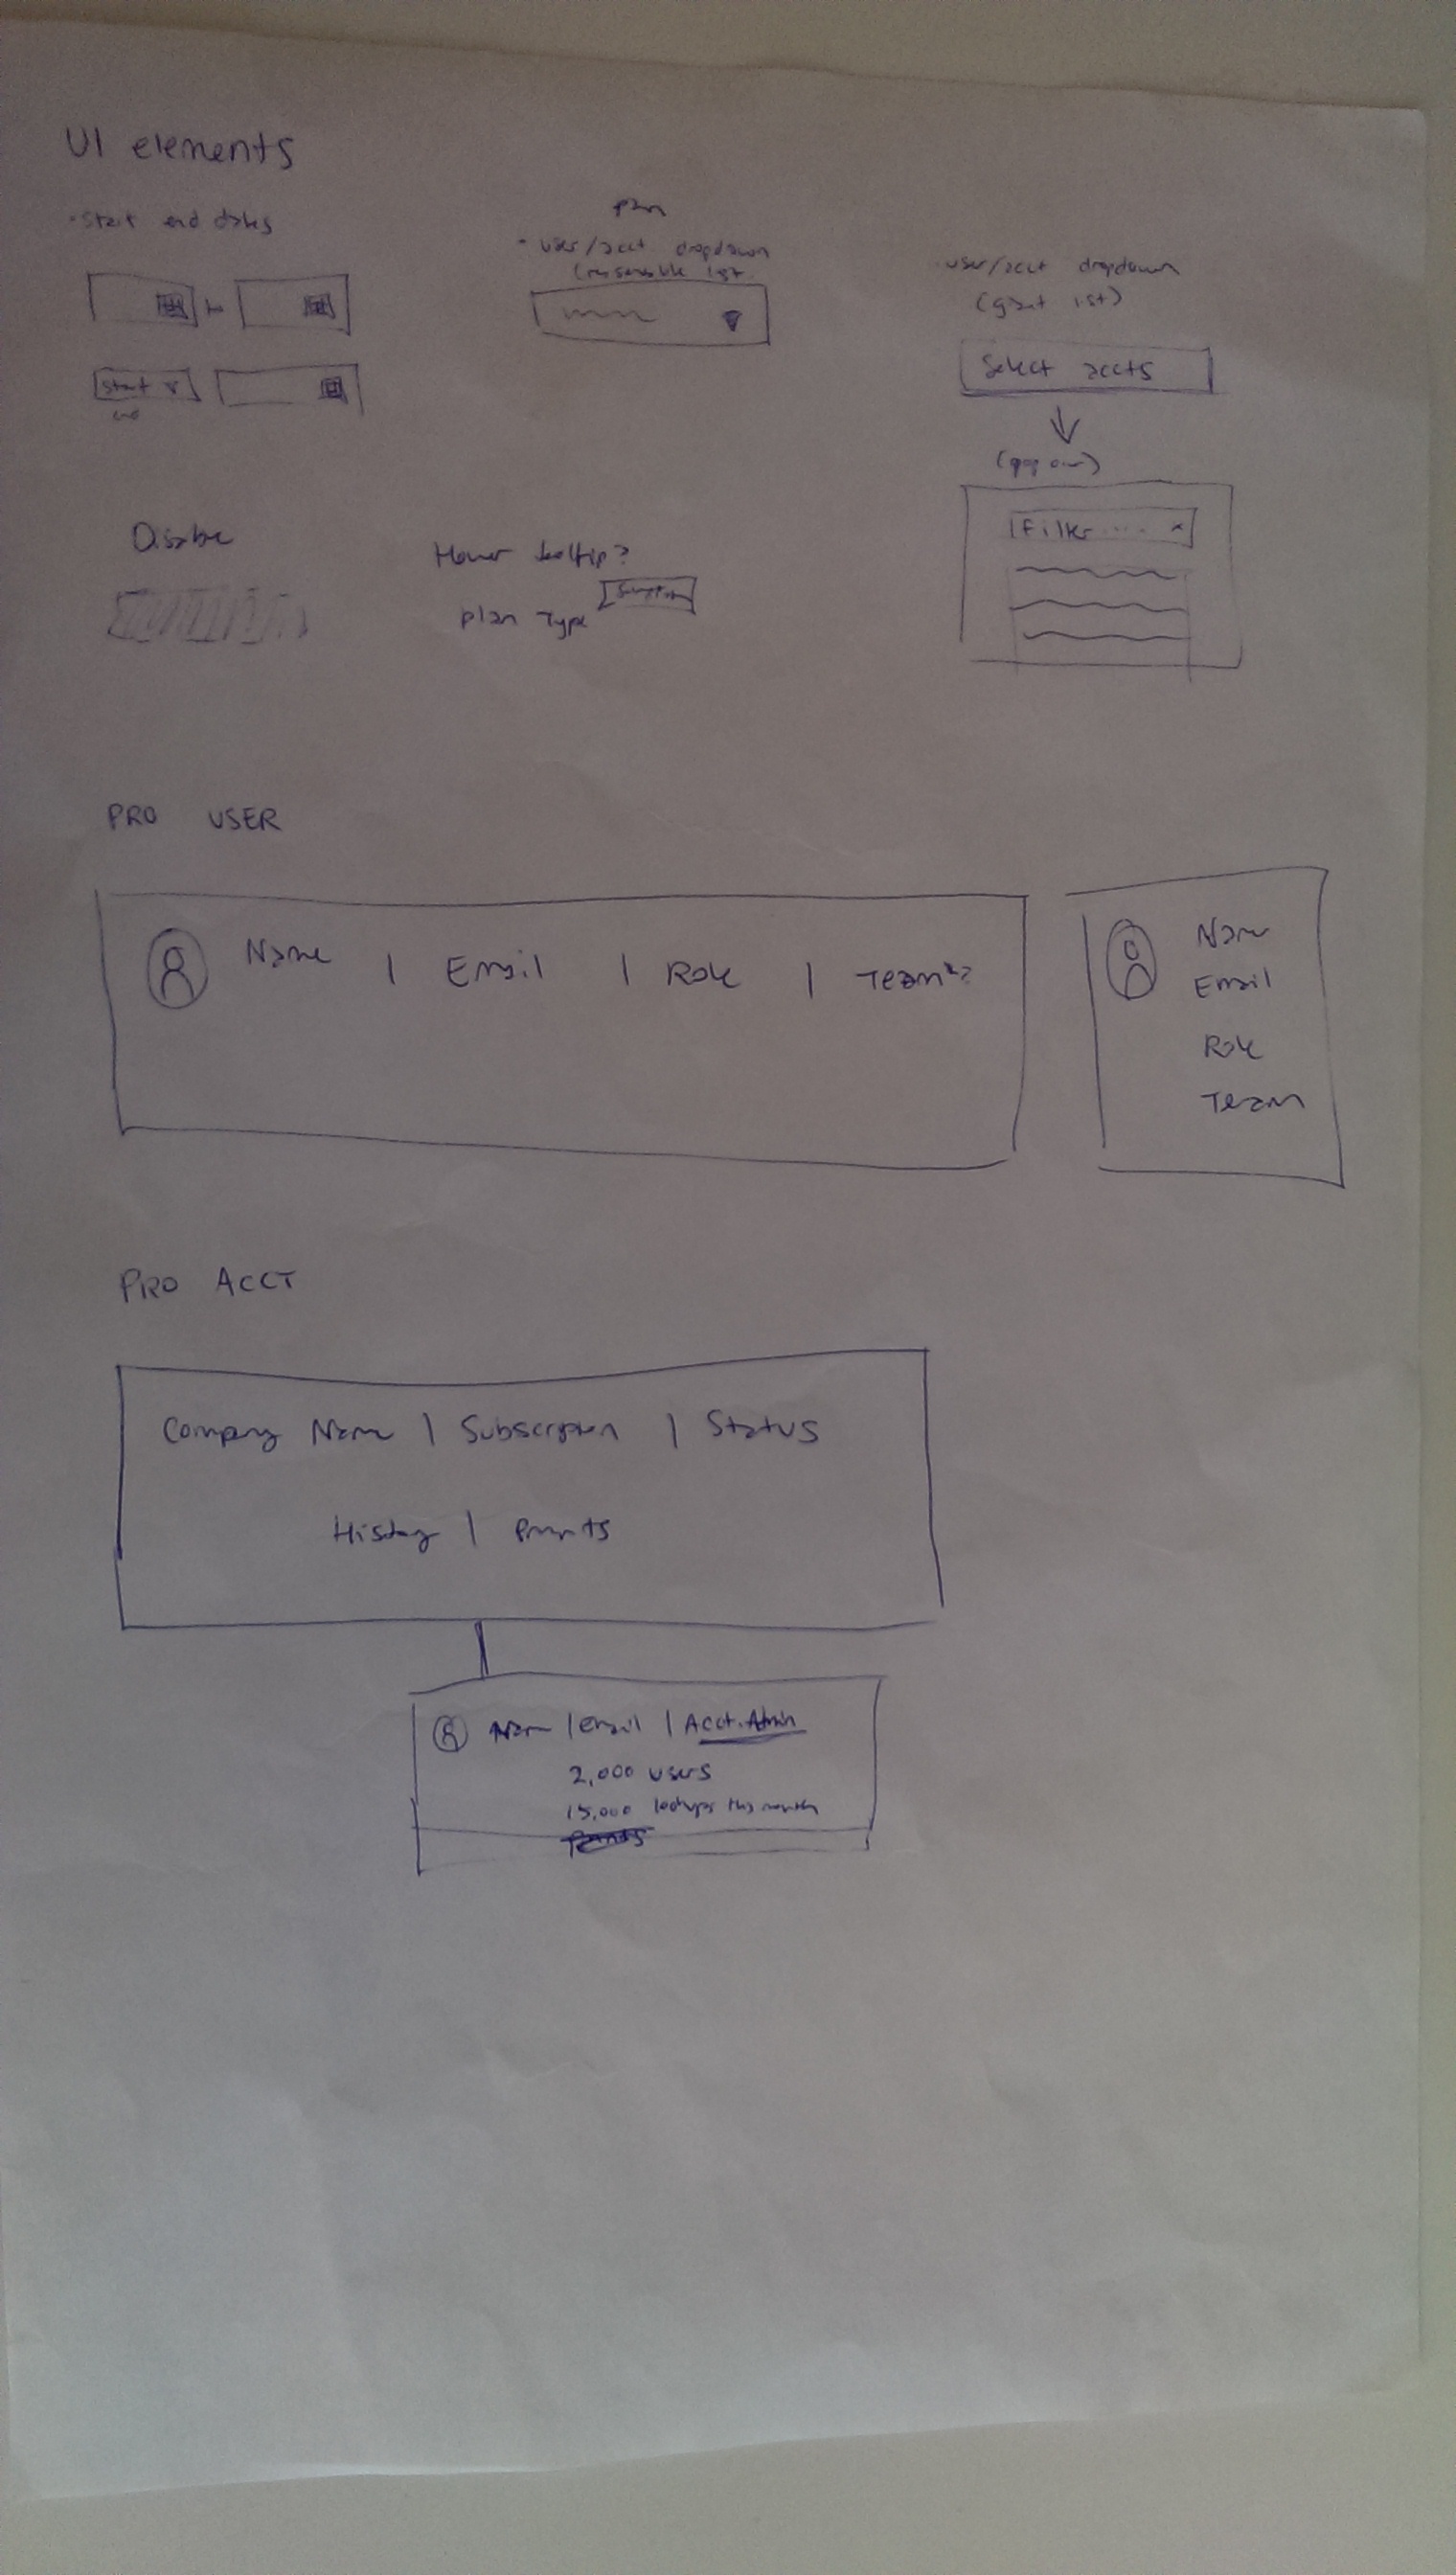 UI elements
• Start end dates
to
Start
end
plan
• user/acct dropdown
(reasonable list
user/acct dropdown
(giant list)
Select accts
(pop over)
Filter .... x
Disable
Hover tooltip?
Plan Type
PRO USER
Name | Email | Role | Team?
Name
Email
Role
Team
PRO ACCT
Company Name | Subscription | Status
History |
Name | email | Acct. Admin
2,000 users
15,000 lookups this month